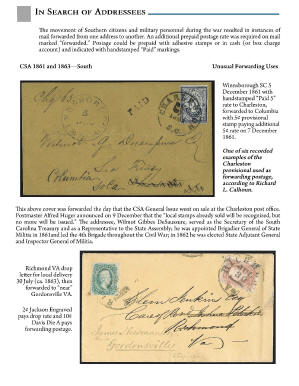 IN SEARCH OF ADDRESSEES
The movement of Southern citizens and military personnel during the war resulted in instances of
mail forwarded from one address to another. An additional prepaid postage rate was required on mail
marked "forwarded." Postage could be prepaid with adhesive stamps or in cash (or box charge
account) and indicated with handstamped "Paid" markings.
CSA 1861 and 1863—South
Unusual Forwarding Uses
Winnsborough SC 5
December 1861 with
handstamped "Paid 5"
rate to Charleston,
forwarded to Columbia
with 5¢ provisional
stamp paying additional
5¢ rate on 7 December
1861.
One of six recorded
examples of the
Charleston
provisional used as
forwarding postage,
according to Richard
L. Calhoun.
PAID
Columbia
This above cover was forwarded the day that the CSA General Issue went on sale at the Charleston post office.
Postmaster Alfred Huger announced on 9 December that the "local stamps already sold will be recognized, but
no more will be issued." The addressee, Wilmot Gibbes DeSaussure, served as the Secretary of the South
Carolina Treasury and as a Representative to the State Assembly; he was appointed Brigadier General of State
Militia in 1861 and led the 4th Brigade throughout the Civil War; in 1862 he was elected State Adjutant General
and Inspector General of Militia.
Richmond VA drop
letter for local delivery
30 July (ca. 1863), then
forwarded to "near"
Gordonsville VA.
2¢ Jackson Engraved
pays drop rate and 10¢
Davis Die A pays
forwarding postage.
Richmond
Va
Gordonsville